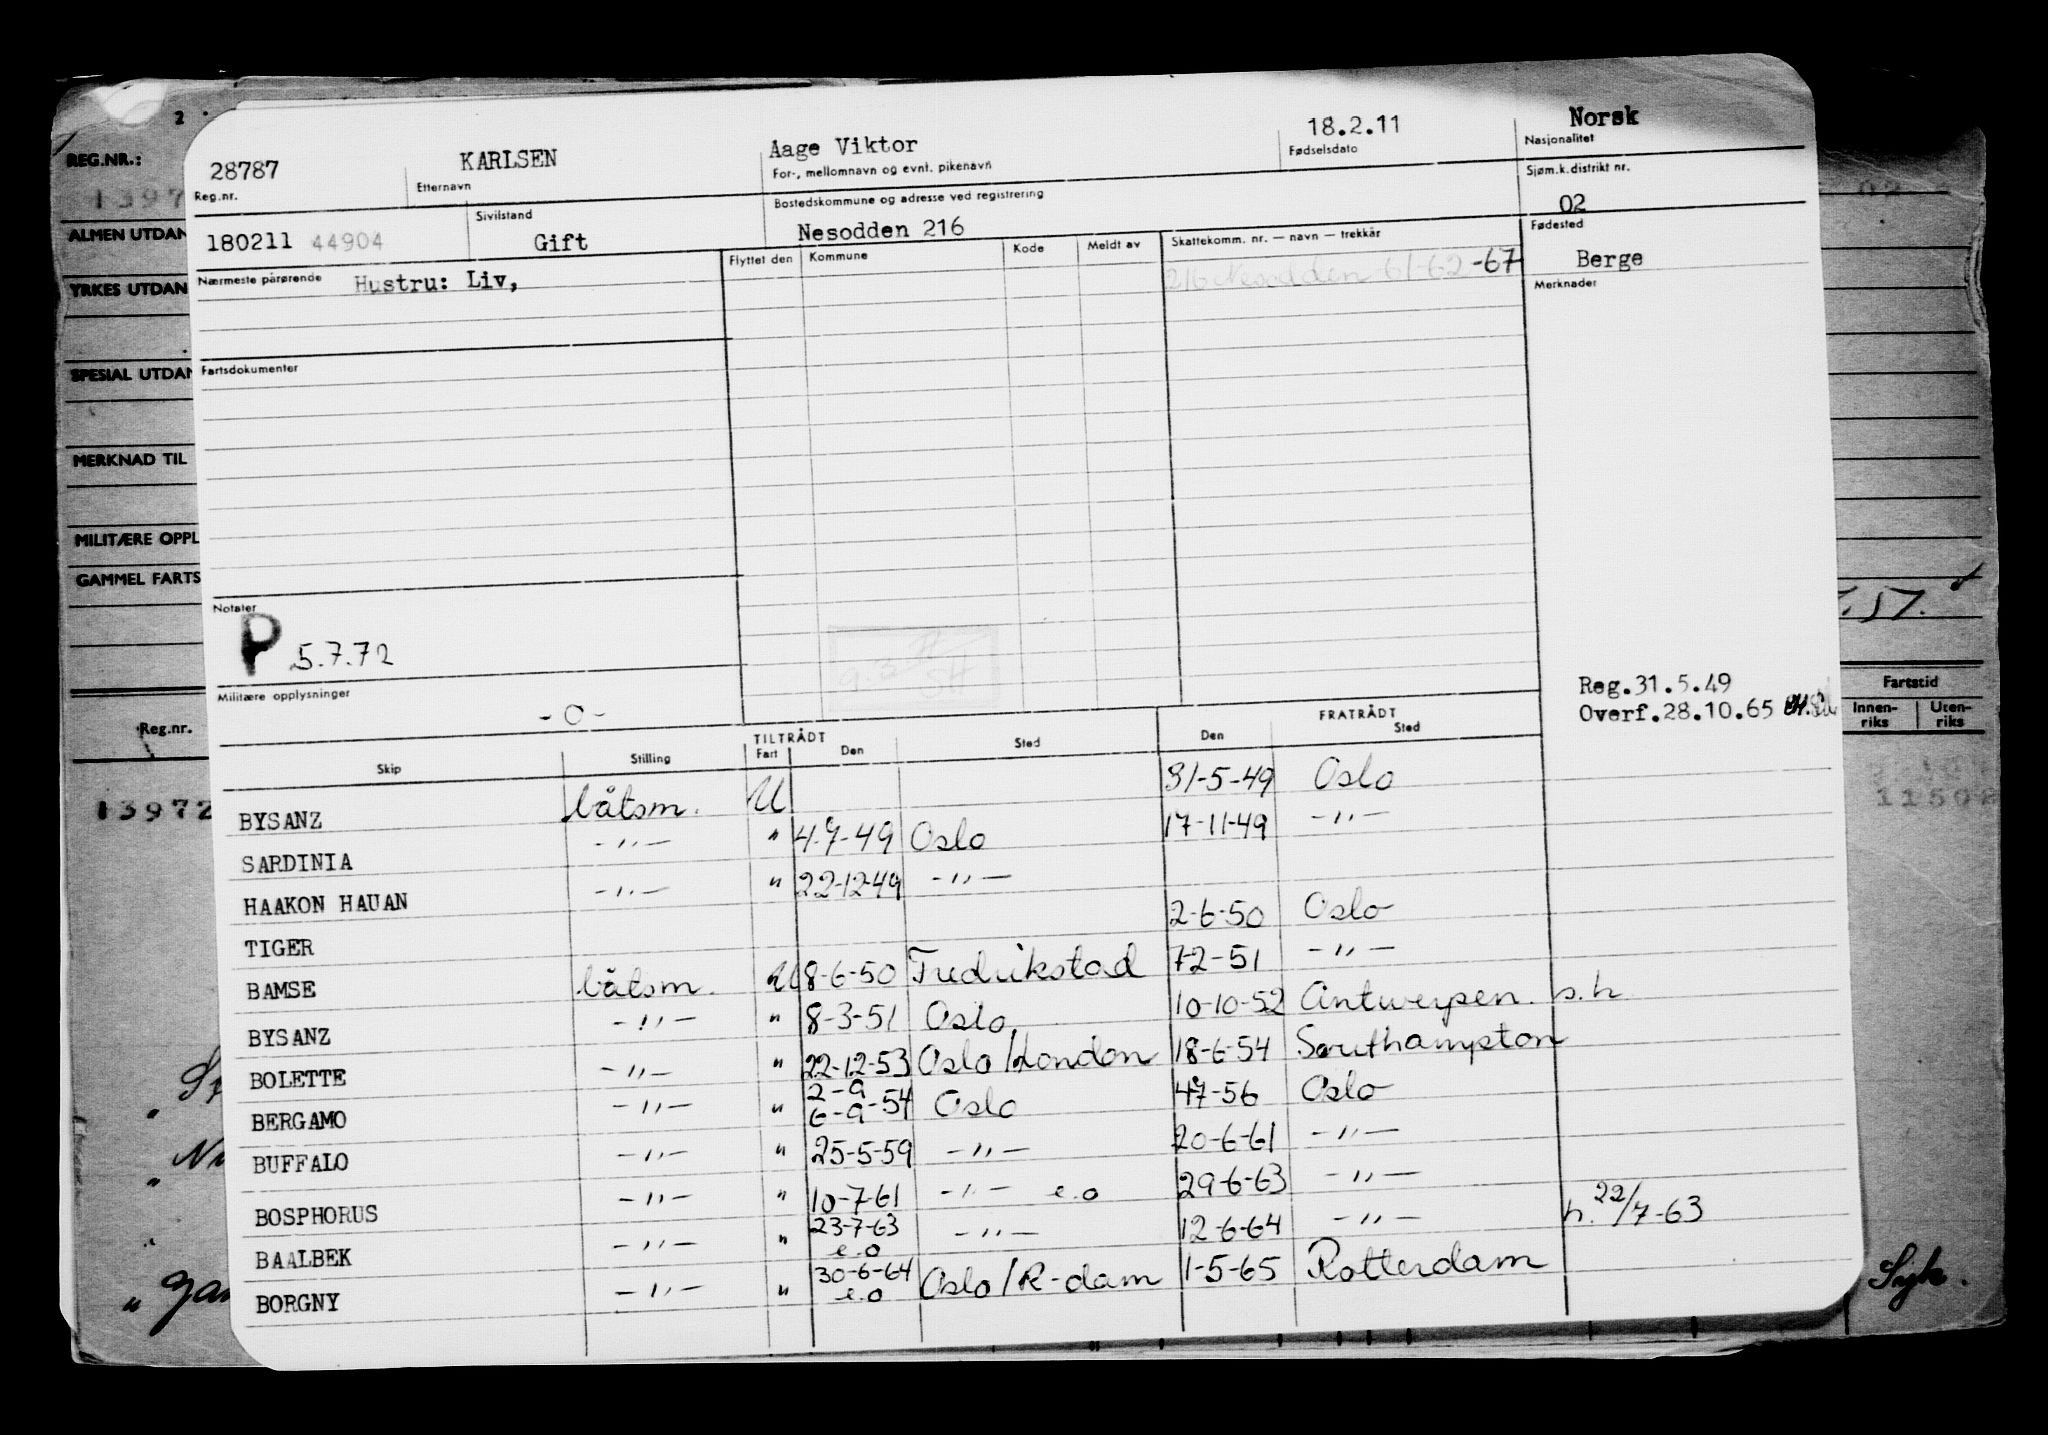 REG.NR.:
ALMEN UTDAN
YRKES UTDAN
SPESIAL UTDAN
MERKNAD TIL
MILITÆRE OPPL
GAMMEL FARTS
Reg.nr.
13972
28787 KARLSEN Aage Viktor 18.2.11 Norsk
Reg.nr. Etternavn For-, mellomnavn og evnt. pikenavn Fødselsdato Nasjonalitet
180211 44904 Sivilstand Gift Bostedskommune og adresse ved registrering Nesodden 216 Sjøm.k.distrikt nr. 02
Nærmeste pårørende Hustru: Liv, Flyttet den Kommune Kode Meldt av Skattekomm. nr. — navn — trekkår Fødested Berge
216 Nesodden 61-62-67 Merknader
Fartsdokumenter
Notater
P 5.7.72
Militære opplysninger
-0-
Reg.31.5.49
Overf.28.10.65
TILTRÅDT FRATRÅDT
Skip Stilling Fart Den Sted Den Sted
BYSANZ båtsm. U 31-5-49 Oslo
SARDINIA -"- " 4-9-49 Oslo 17-11-49 -"-
HAAKON HAUAN -"- " 22-12-49 -"-
TIGER 2-6-50 Oslo
BAMSE båtsm. U 8-6-50 Fredrikstad 7-2-51 -"-
BYSANZ -"- " 8-3-51 Oslo 10-10-52 Antwerpen. s.h
BOLETTE -"- " 22-12-53 Oslo/London 18-6-54 Southampton
BERGAMO -"- " 2-9 6-9-54 Oslo 4-7-56 Oslo
BUFFALO -"- " 25-5-59 -"- 20-6-61 -"-
BOSPHORUS -"- " 10-7-61 -"- e.o 29-6-63 -"-
BAALBEK -"- " 23-7-63 e.o -"- 12-6-64 -"- h. 22/7-63
BORGNY -"- " 30-6-64 e.o Oslo/R-dam 1-5-65 Rotterdam
Fartstid
Innen-riks Uten-riks
Syk.